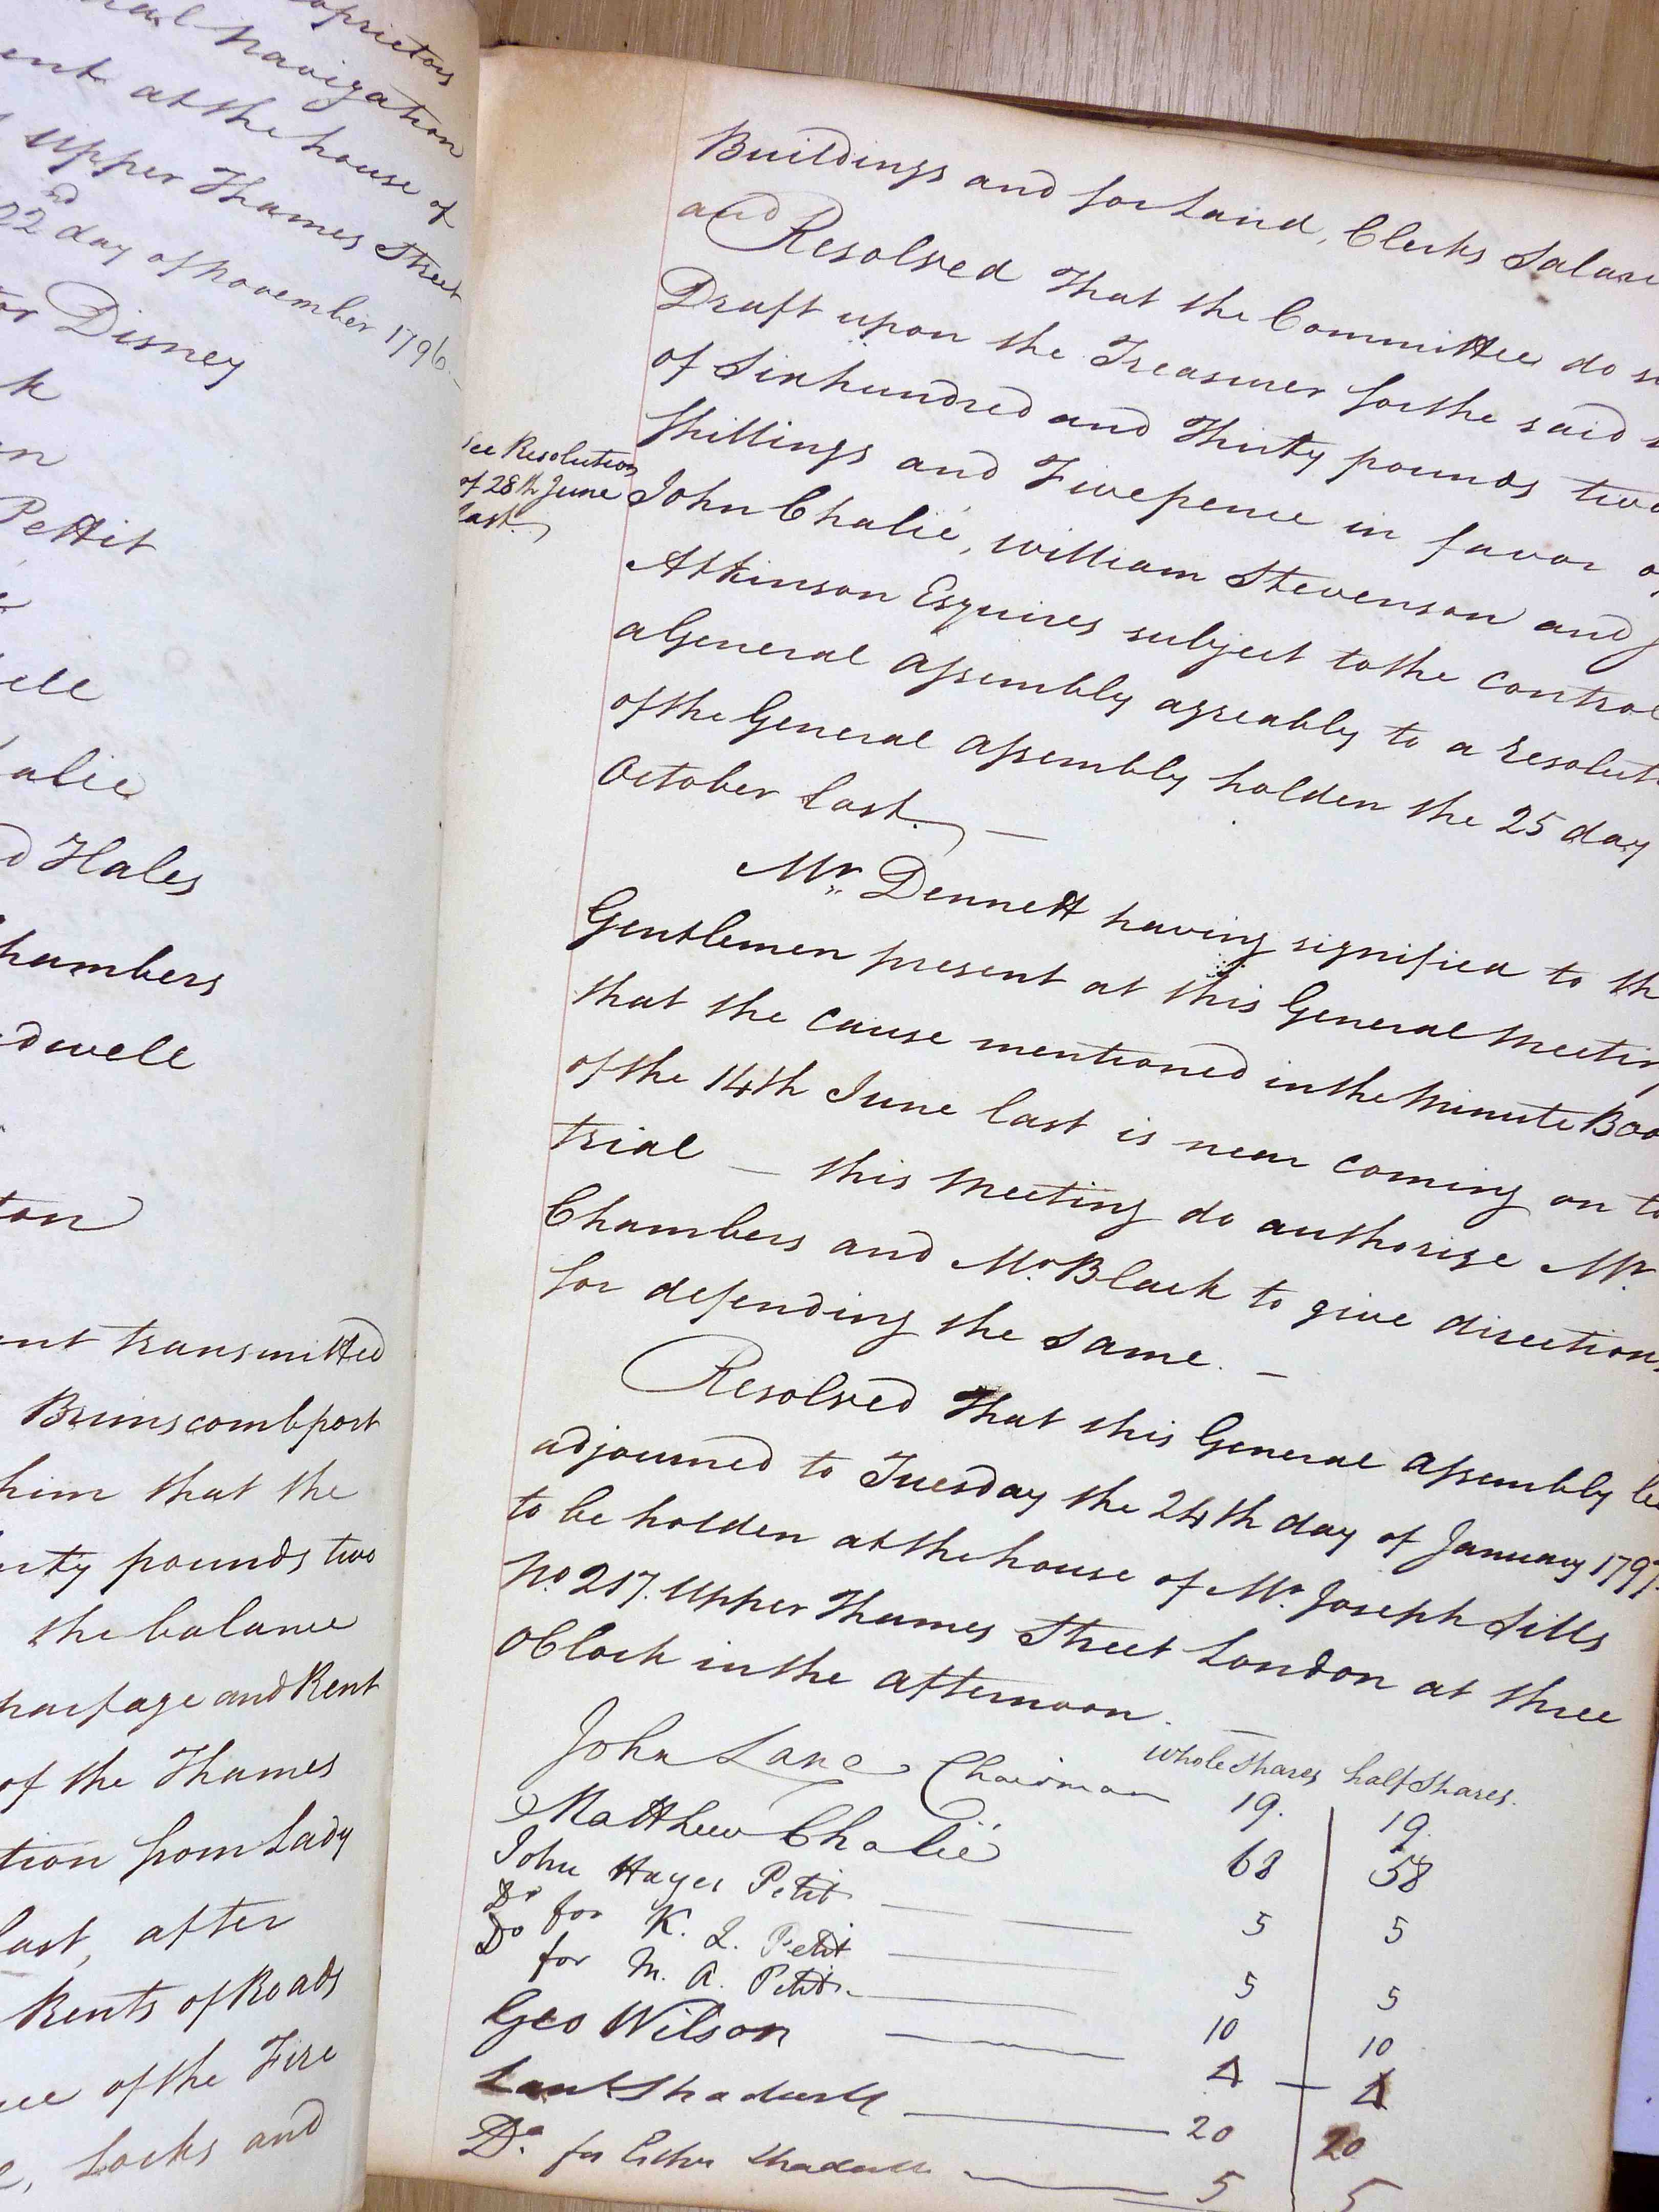 oprietors
nal Navigation
ent at the house of
Upper Thames Street
22nd day of November 1796.
or Disney
k
on
Pettit
ell
alie
d Hales
hambers
adwell
ton
ent transmitted
Brimscombport
him that the
irty pounds two
the balance
harfage and Rent
of the Thames
tion from Lady
last, after
Rents of Roads
ce of the Fire
Locks and
Buildings and for Land, Clerks Salari
and
Resolved That the Committee do
Draft upon the Treasurer for the said
of Six hundred and Thirty pounds two
Shillings and Fivepence in favor of
See Resolution
of 28th June
last.
John Chalié, William Stevenson and J
Atkinson Esquires subject to the control
a General Assembly agreably to a resoluti
of the General Assembly holden the 25 day
October last. —
Mr. Dennett having signified to th
Gentlemen present at this General Meetin
that the cause mentioned in the Minute Boo
of the 14th June last is near coming on to
trial — this Meeting do authorize Mr.
Chambers and Mr. Black to give directions
for defending the same. —
Resolved That this General Assembly be
adjourned to Tuesday the 24th day of January 1797.
to be holden at the house of Mr. Joseph Sills
No. 217. Upper Thames Street London at three
OClock in the afternoon. —
Whole Shares half Shares.
John Lane Chairman 19. 19.
Matthew Chalié 68 58
John Hayes Petit 5 5
Do for K. L. Petit 5 5
Do for M. A. Petit 10 10
Geo Wilson 4 — 4
Lanc Shadwell 20 20
Do. for Esther Shadwell 5 5